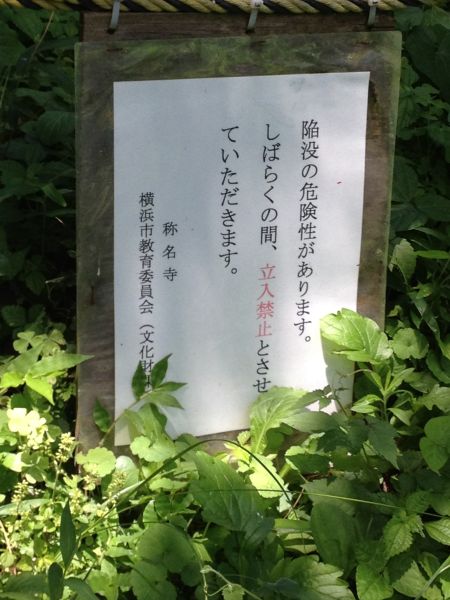 陥没の危険性があります。
しばらくの間、立入禁止とさせ
ていただきます。
称名寺
横浜市教育委員会（文化財